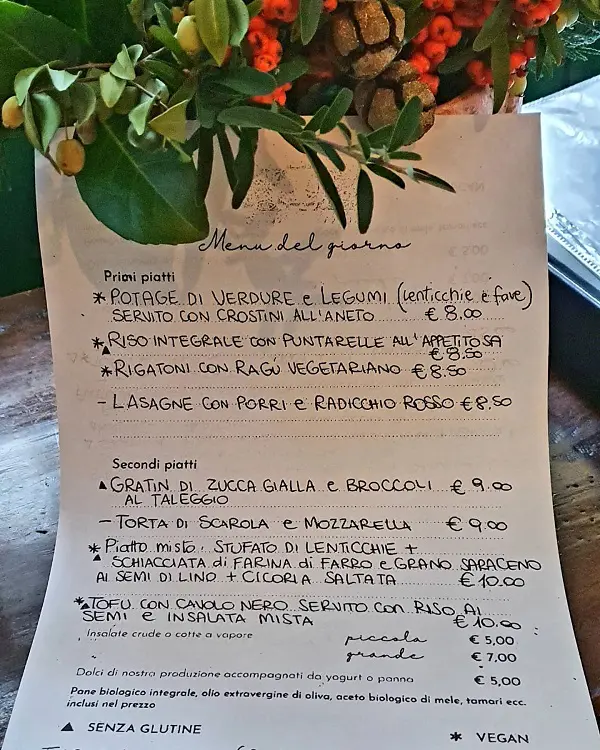 Menu del giorno
Primi piatti
* POTAGE DI VERDURE e LEGUMI (lenticchie e fave)
SERVITO CON CROSTINI ALL'ANETO € 8.00
*▲ RISO INTEGRALE CON PUNTARELLE ALL'APPETITOSA
€ 8.50
* RIGATONI CON RAGÚ VEGETARIANO € 8.50
- LASAGNE CON PORRI e RADICCHIO ROSSO € 8.50
Secondi piatti
▲ GRATIN DI ZUCCA GIALLA e BROCCOLI € 9.00
AL TALEGGIO
- TORTA DI SCAROLA e MOZZARELLA € 9.00
* Piatto misto: STUFATO DI LENTICCHIE +
▲ SCHIACCIATA di FARINA di FARRO e GRANO SARACENO
AI SEMI DI LINO + CICORIA SALTATA € 10.00
*▲ TOFU CON CAVOLO NERO SERVITO CON RISO AI
SEMI E INSALATA MISTA € 10.00
Insalate crude o cotte a vapore piccola € 5,00
" grande € 7,00
Dolci di nostra produzione accompagnati da yogurt o panna € 5,00
Pane biologico integrale, olio extravergine di oliva, aceto biologico di mele, tamari ecc.
inclusi nel prezzo
▲ SENZA GLUTINE * VEGAN